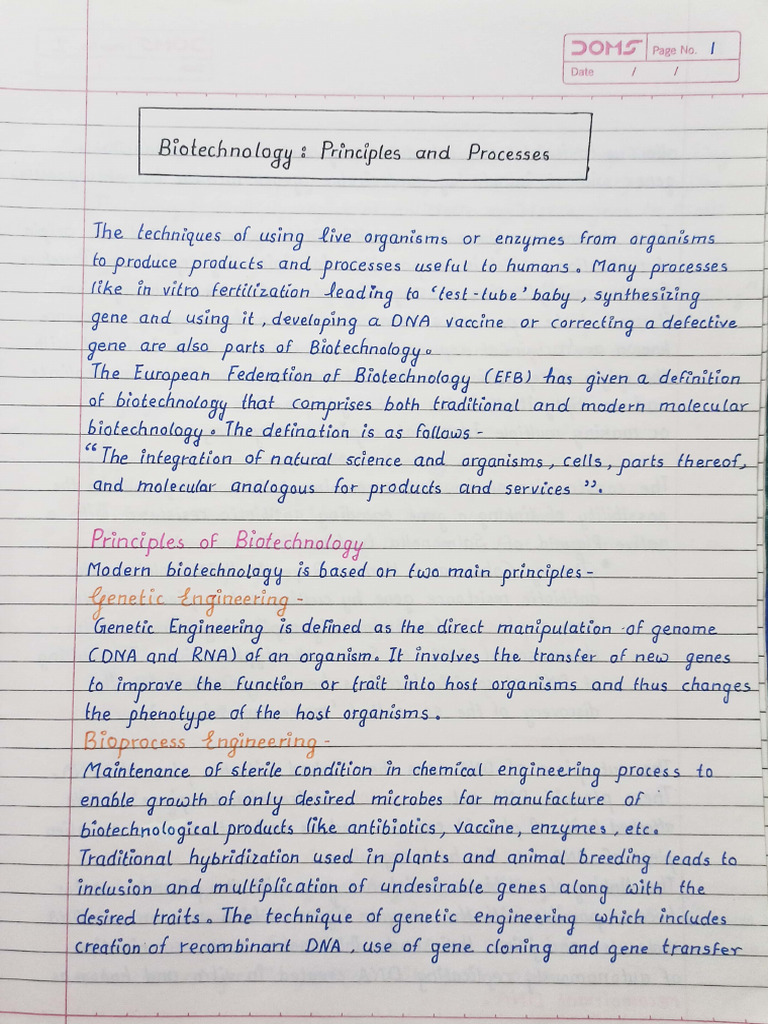 DOMS Page No. 1
Date / /
Biotechnology: Principles and Processes
The techniques of using live organisms or enzymes from organisms
to produce products and processes useful to humans. Many processes
like in vitro fertilization leading to 'test-tube' baby, synthesizing
gene and using it, developing a DNA vaccine or correcting a defective
gene are also parts of Biotechnology.
The European Federation of Biotechnology (EFB) has given a definition
of biotechnology that comprises both traditional and modern molecular
biotechnology. The defination is as follows -
"The integration of natural science and organisms, cells, parts thereof,
and molecular analogous for products and services".
Principles of Biotechnology
Modern biotechnology is based on two main principles -
Genetic Engineering -
Genetic Engineering is defined as the direct manipulation of genome
(DNA and RNA) of an organism. It involves the transfer of new genes
to improve the function or trait into host organisms and thus changes
the phenotype of the host organisms.
Bioprocess Engineering -
Maintenance of sterile condition in chemical engineering process to
enable growth of only desired microbes for manufacture of
biotechnological products like antibiotics, vaccine, enzymes, etc.
Traditional hybridization used in plants and animal breeding leads to
inclusion and multiplication of undesirable genes along with the
desired traits. The technique of genetic engineering which includes
creation of recombinant DNA, use of gene cloning and gene transfer